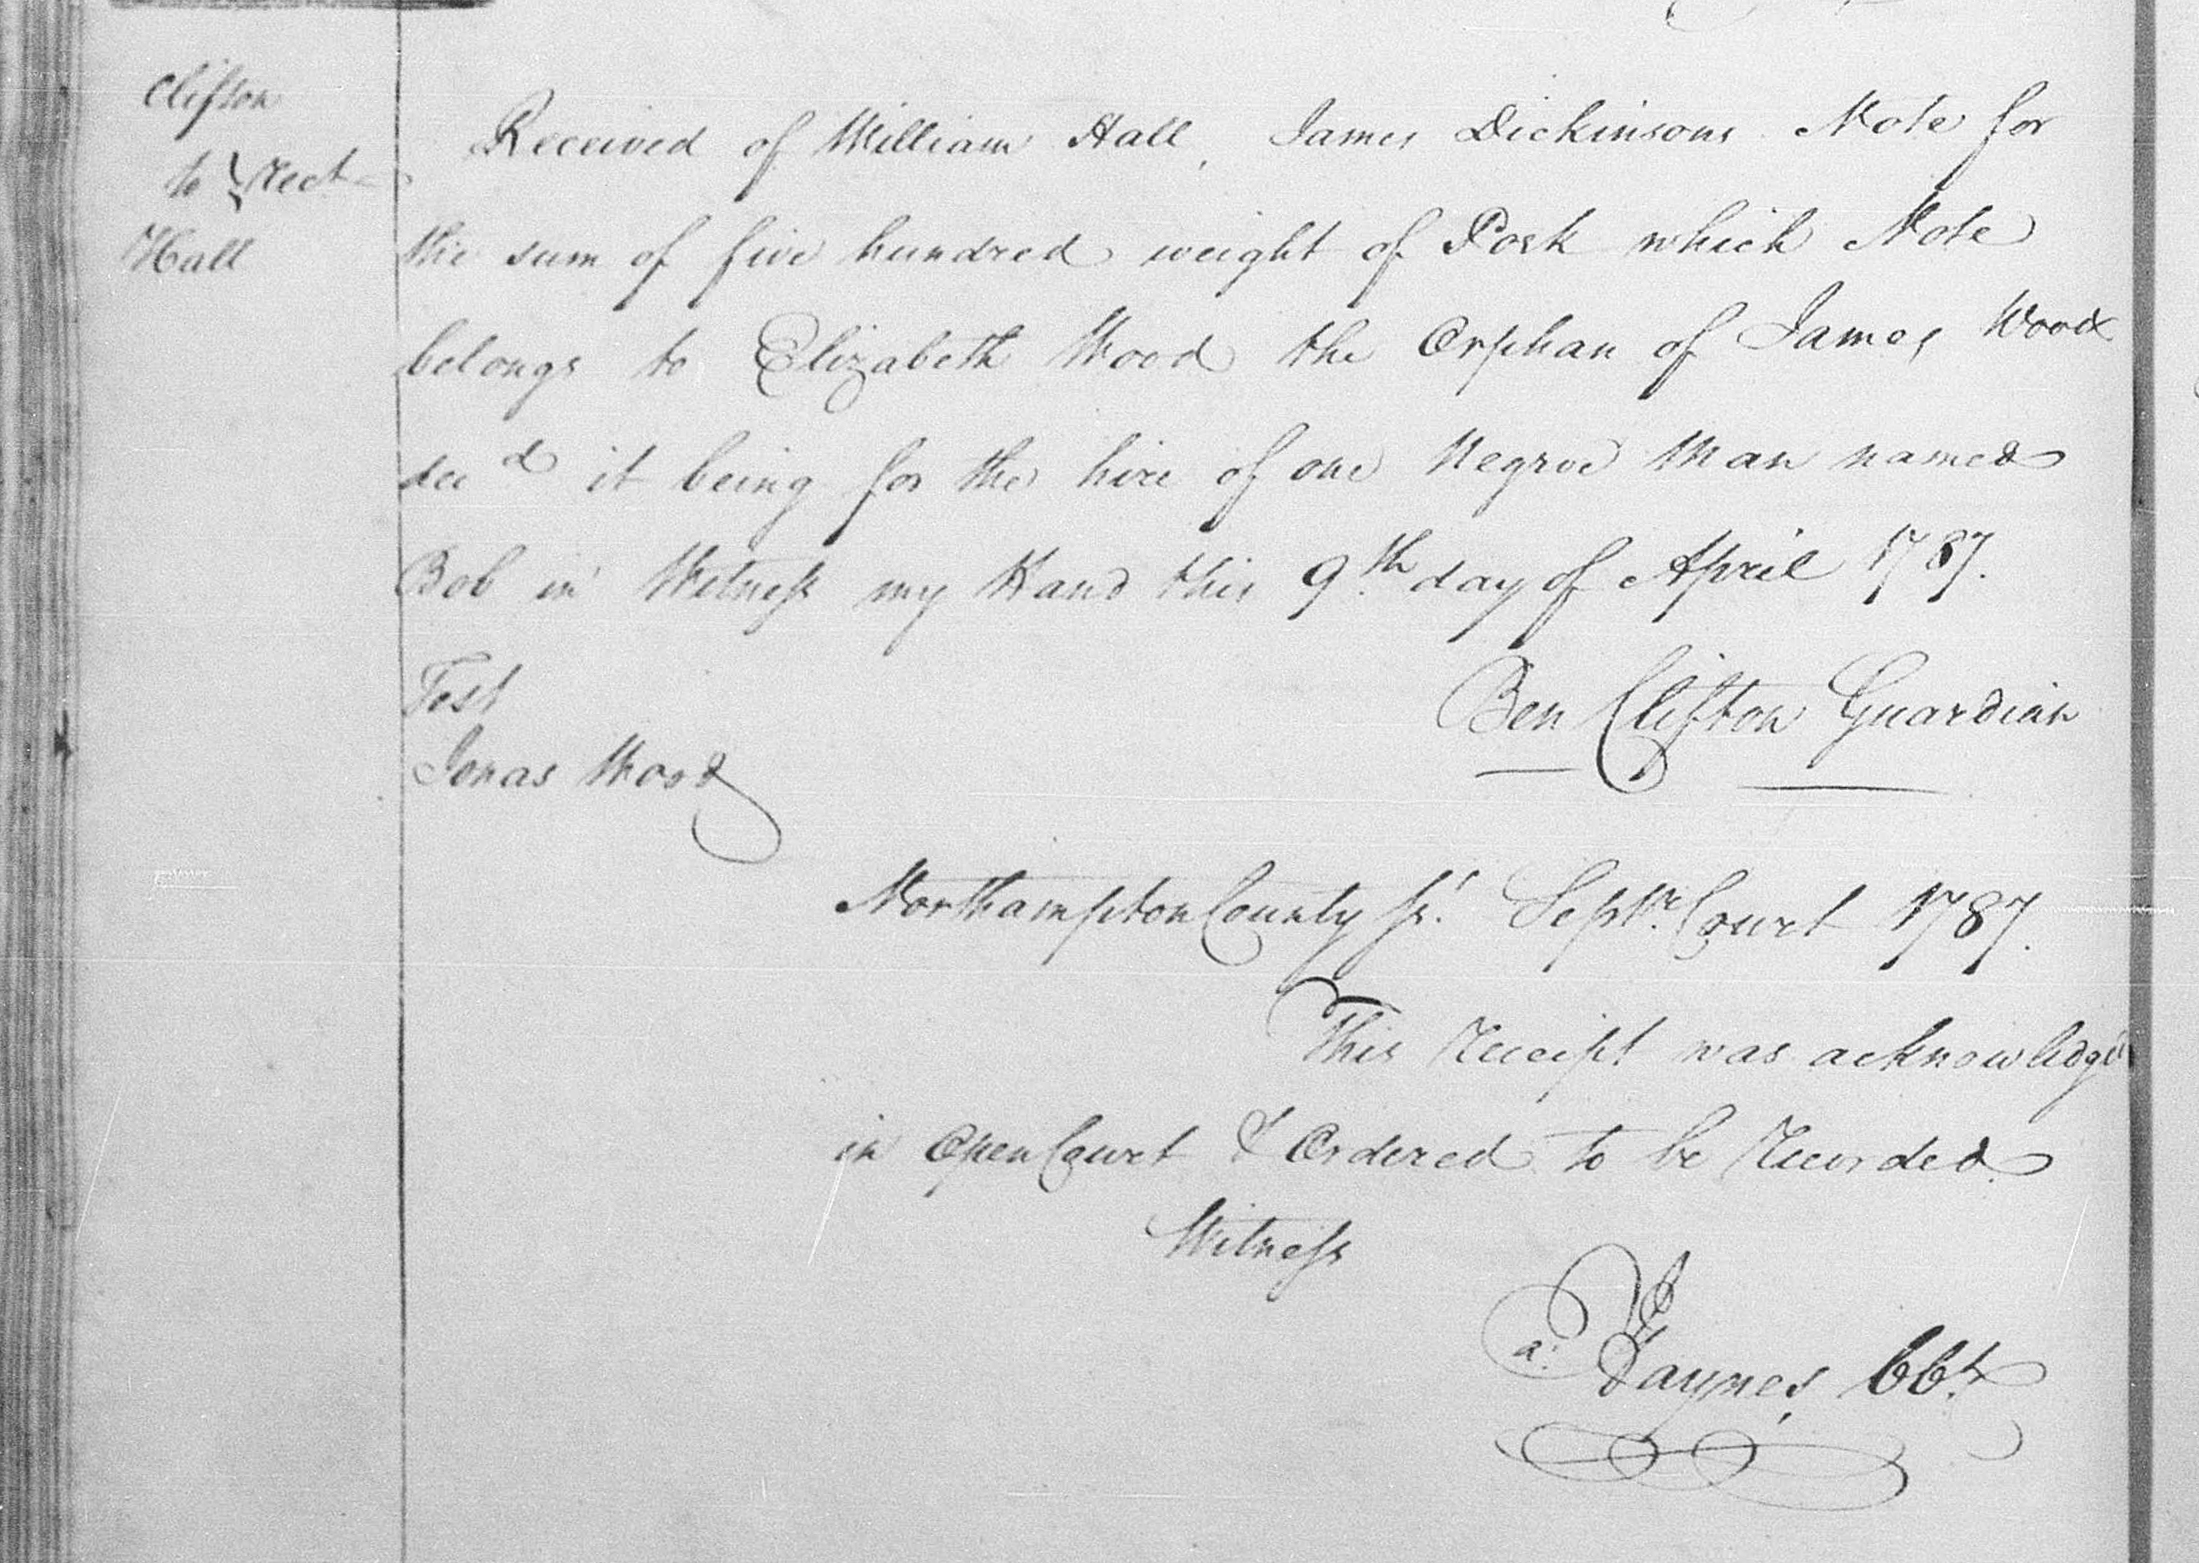 Clifton
to } Rect
Hall
Received of William Hall, James Dickinsons Note for
the sum of five hundred weight of Pork which Note
belongs to Elizabeth Wood the Orphan of James Wood
decd it being for the hire of one Negroe Man named
Bob in Witness my Hand this 9th day of April 1787.
Test
Ben Clifton Guardian
Jonas Wood
Northampton County Ss. Septr. Court 1787.
This Receipt was acknowledg'd
in Open Court & Ordered to be Recorded
Witness